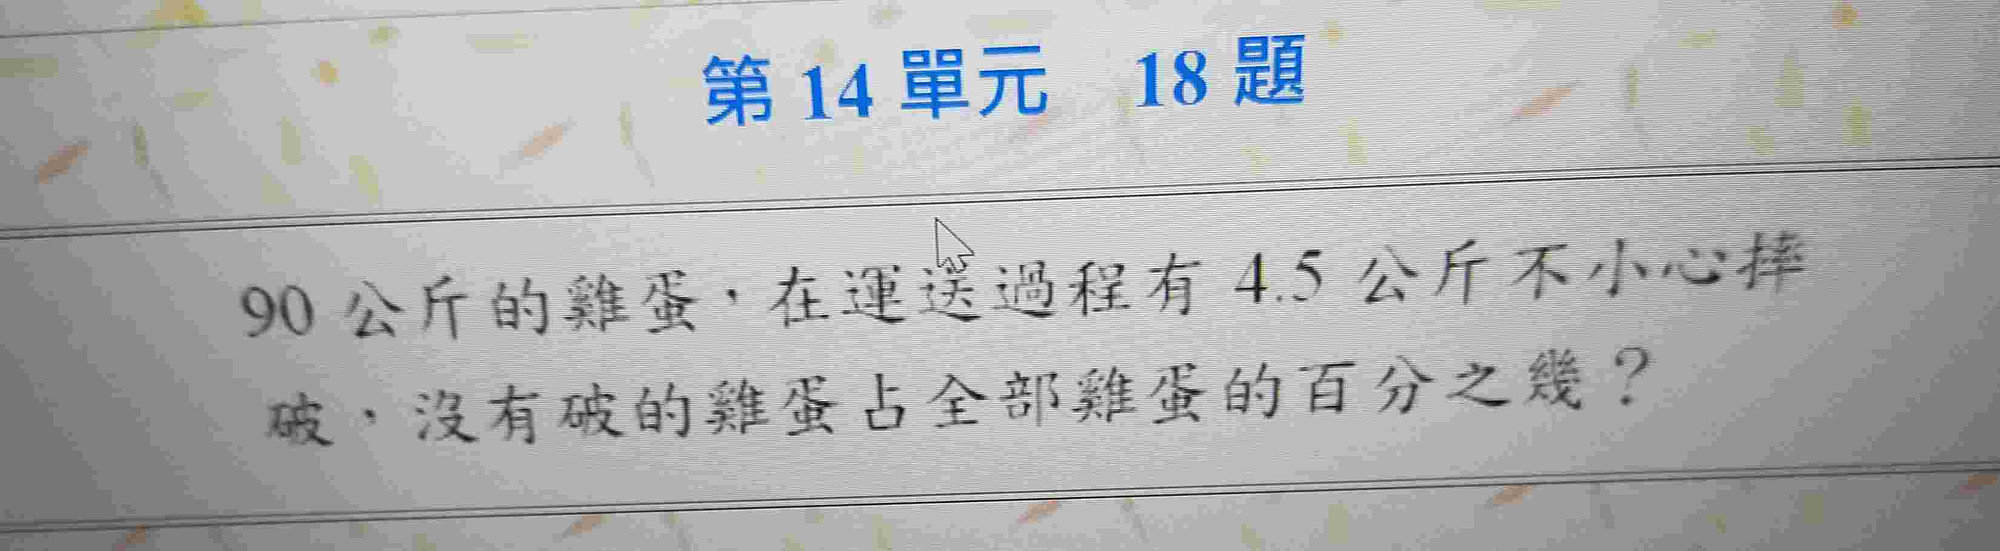 第 14 單元 18 題
90 公斤的雞蛋，在運送過程有 4.5 公斤不小心摔
破，沒有破的雞蛋占全部雞蛋的百分之幾？